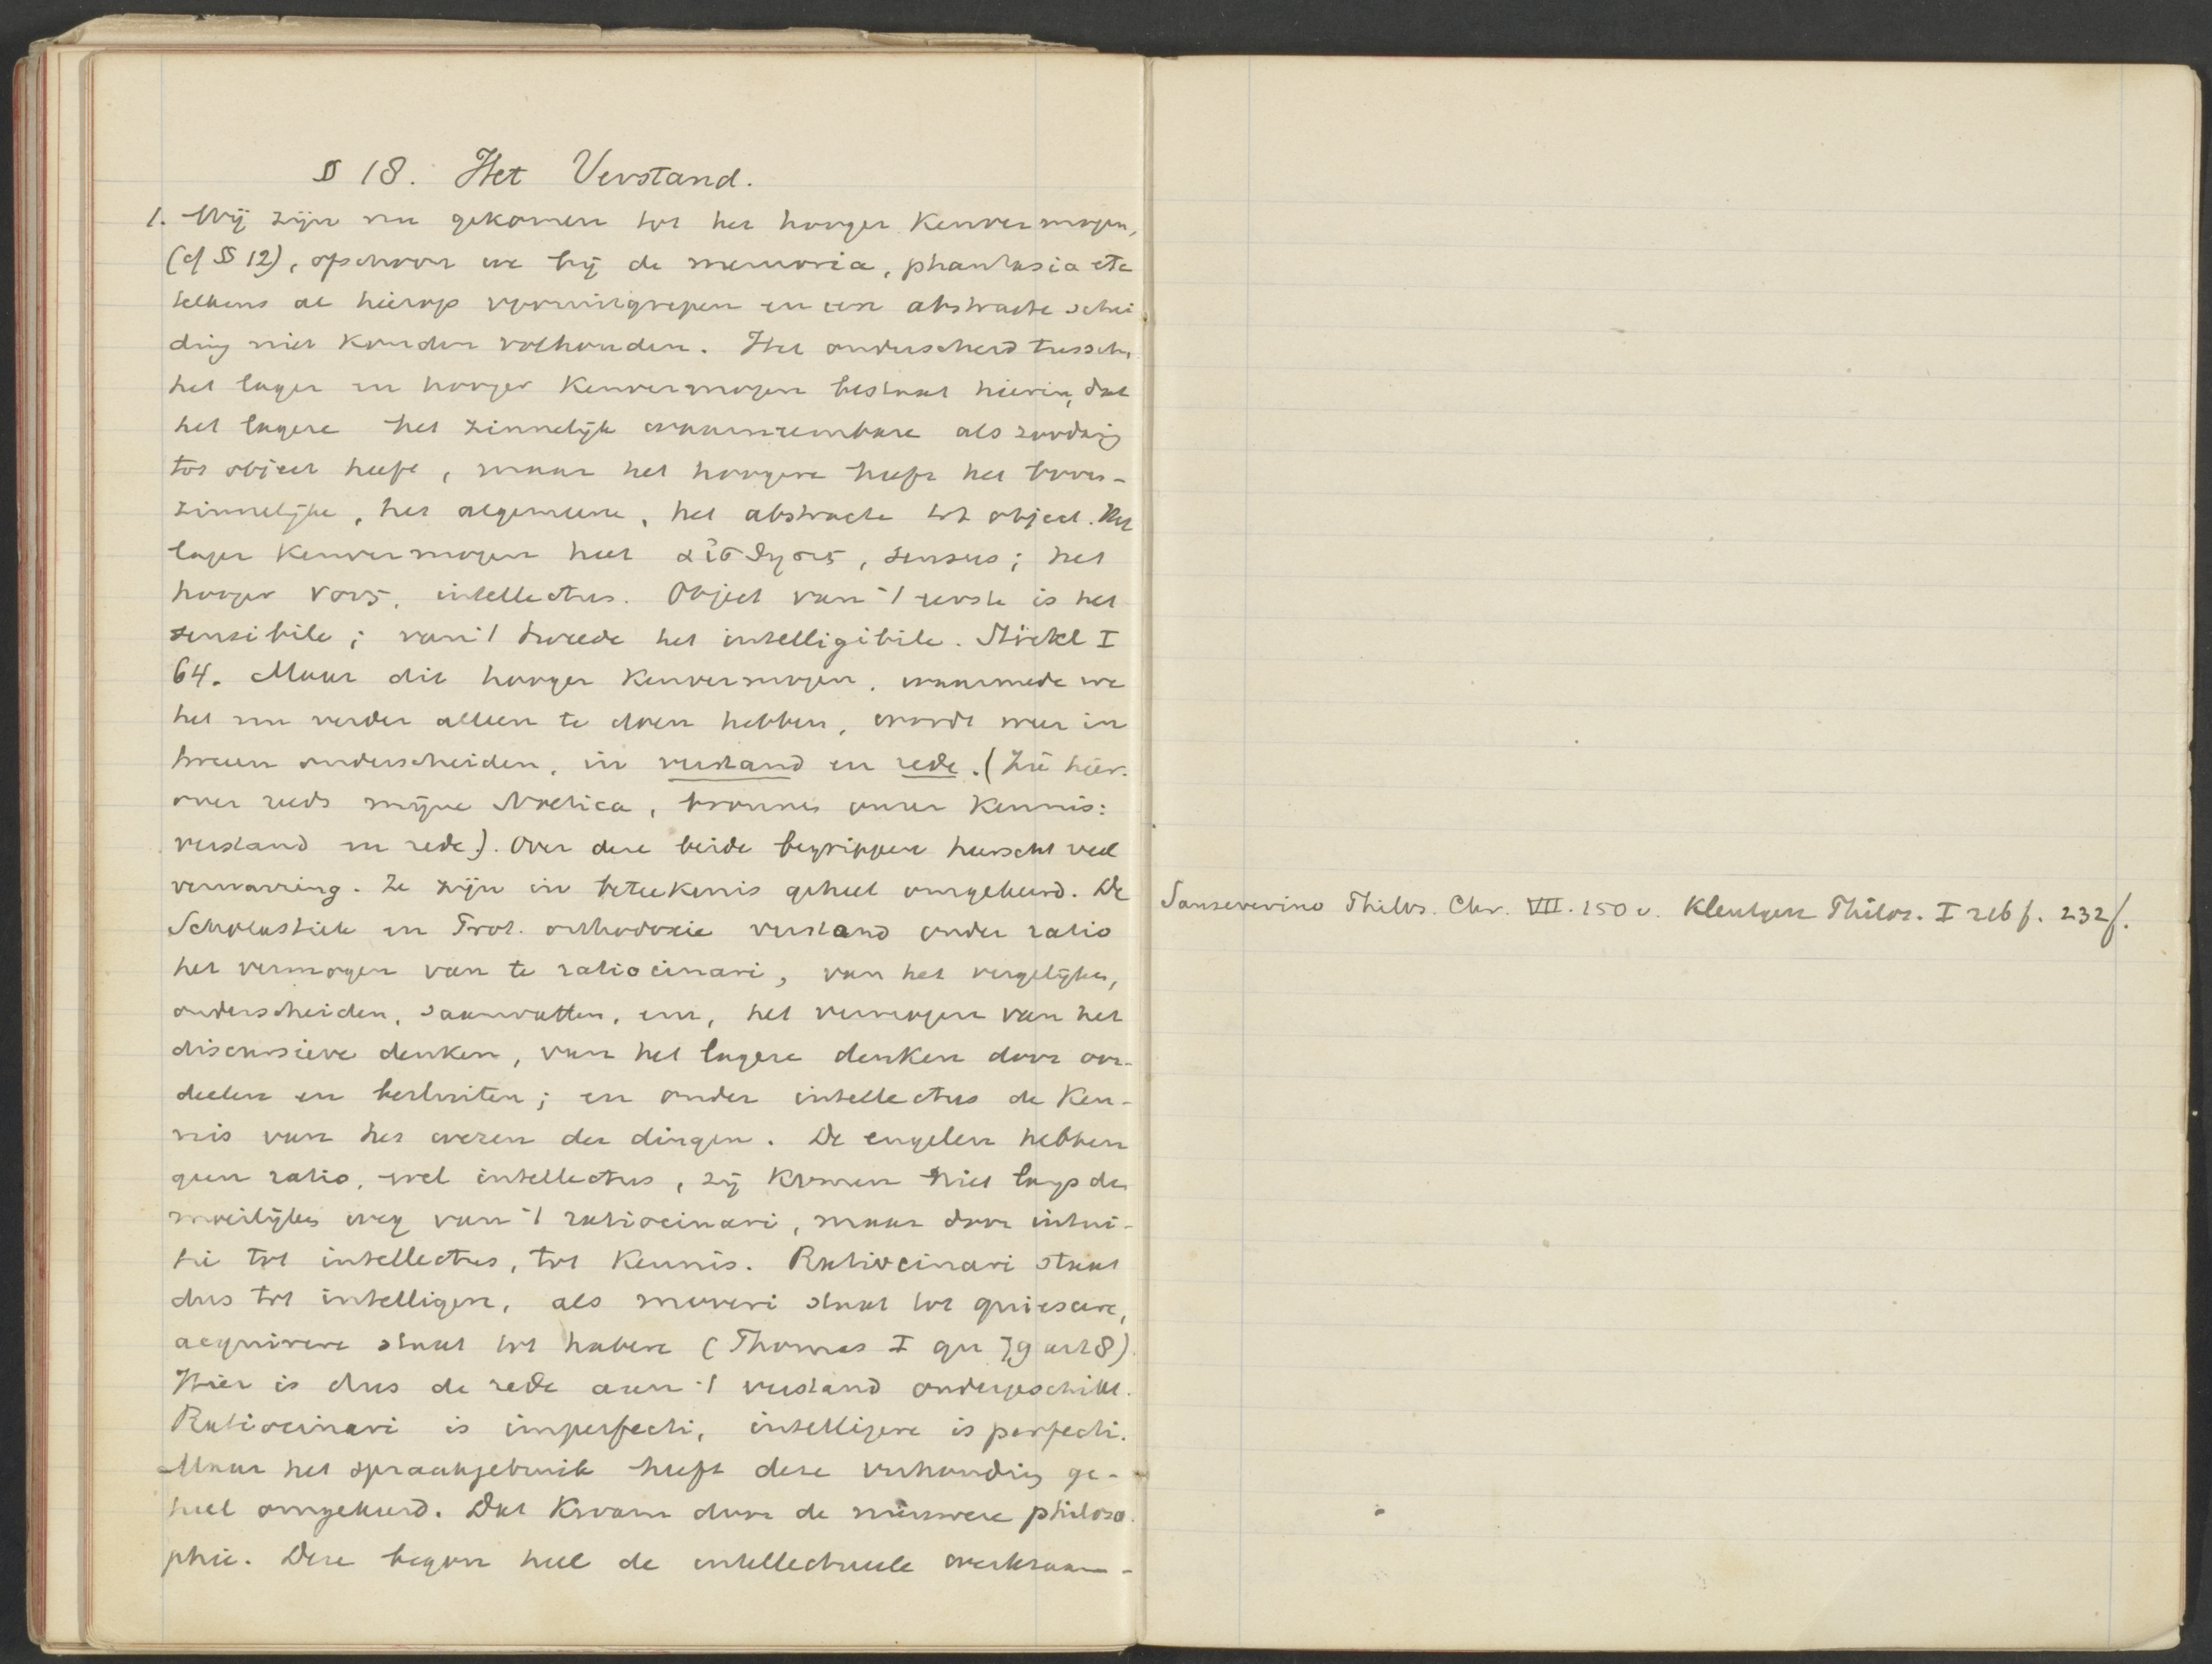 § 18. Het Verstand.
1. Wij zijn nu gekomen tot het hooger Kenvermogen,
(cf § 12), ofschoon we bij de memoria, phantasia etc
telkens al hierop vooruitgrepen en een abstracte schei
ding niet konden volhouden. Het onderscheid tussch.
het lager en hooger Kenvermogen bestaat hierin, dat
het lagere het zinnelijk waarneembare als zoodanig
tot object heeft, maar het hoogere heeft het boven-
zinnelijke, het algemeene, het abstracte tot object. Het
lager Kenvermogen heet αἴσθησις, sensus; het
hooger νους, intellectus. Object van 't eerste is het
sensibile; van 't tweede het intelligibile. Stöckl I
64. Maar dit hooger Kenvermogen, waarmede we
het nu verder alleen te doen hebben, wordt weer in
tweeen onderscheiden, in verstand en rede. (Zie hier-
over reeds mijne Noetica, bronnen onzer Kennis:
verstand en rede). Over deze beide begrippen heerscht veel
verwarring. Ze zijn in beteekenis geheel omgekeerd. De
Scholastiek en Prot. orthodoxie verstand onder ratio
het vermogen van te ratiocinari, van het vergelijken,
onderscheiden, saamvatten, enz, het vermogen van het
discursieve denken, van het lagere denken door oor-
deelen en besluiten; en onder intellectus de Ken-
nis van het wezen der dingen. De engelen hebben
geen ratio, wel intellectus, zij komen niet langs den
moeilijken weg van 't ratiocinari, maar door intui-
tie tot intellectus, tot Kennis. Ratiocinari staat
dus tot intelligere, als moveri staat tot quiescere,
acquirere staat tot habere (Thomas I qu 79 art 8)
Hier is dus de rede aan 't verstand ondergeschikt.
Ratiocinari is imperfecti, intelligere is perfecti.
Maar het spraakgebruik heeft deze verhouding ge-
heel omgekeerd. Dat kwam door de nieuwere philoso
phie. Deze begon heel de intellectueele werkzaam-
Sanseverino Philos. Chr. VII. 150 v. Kleutgen Philos. I 216 f. 232 f.